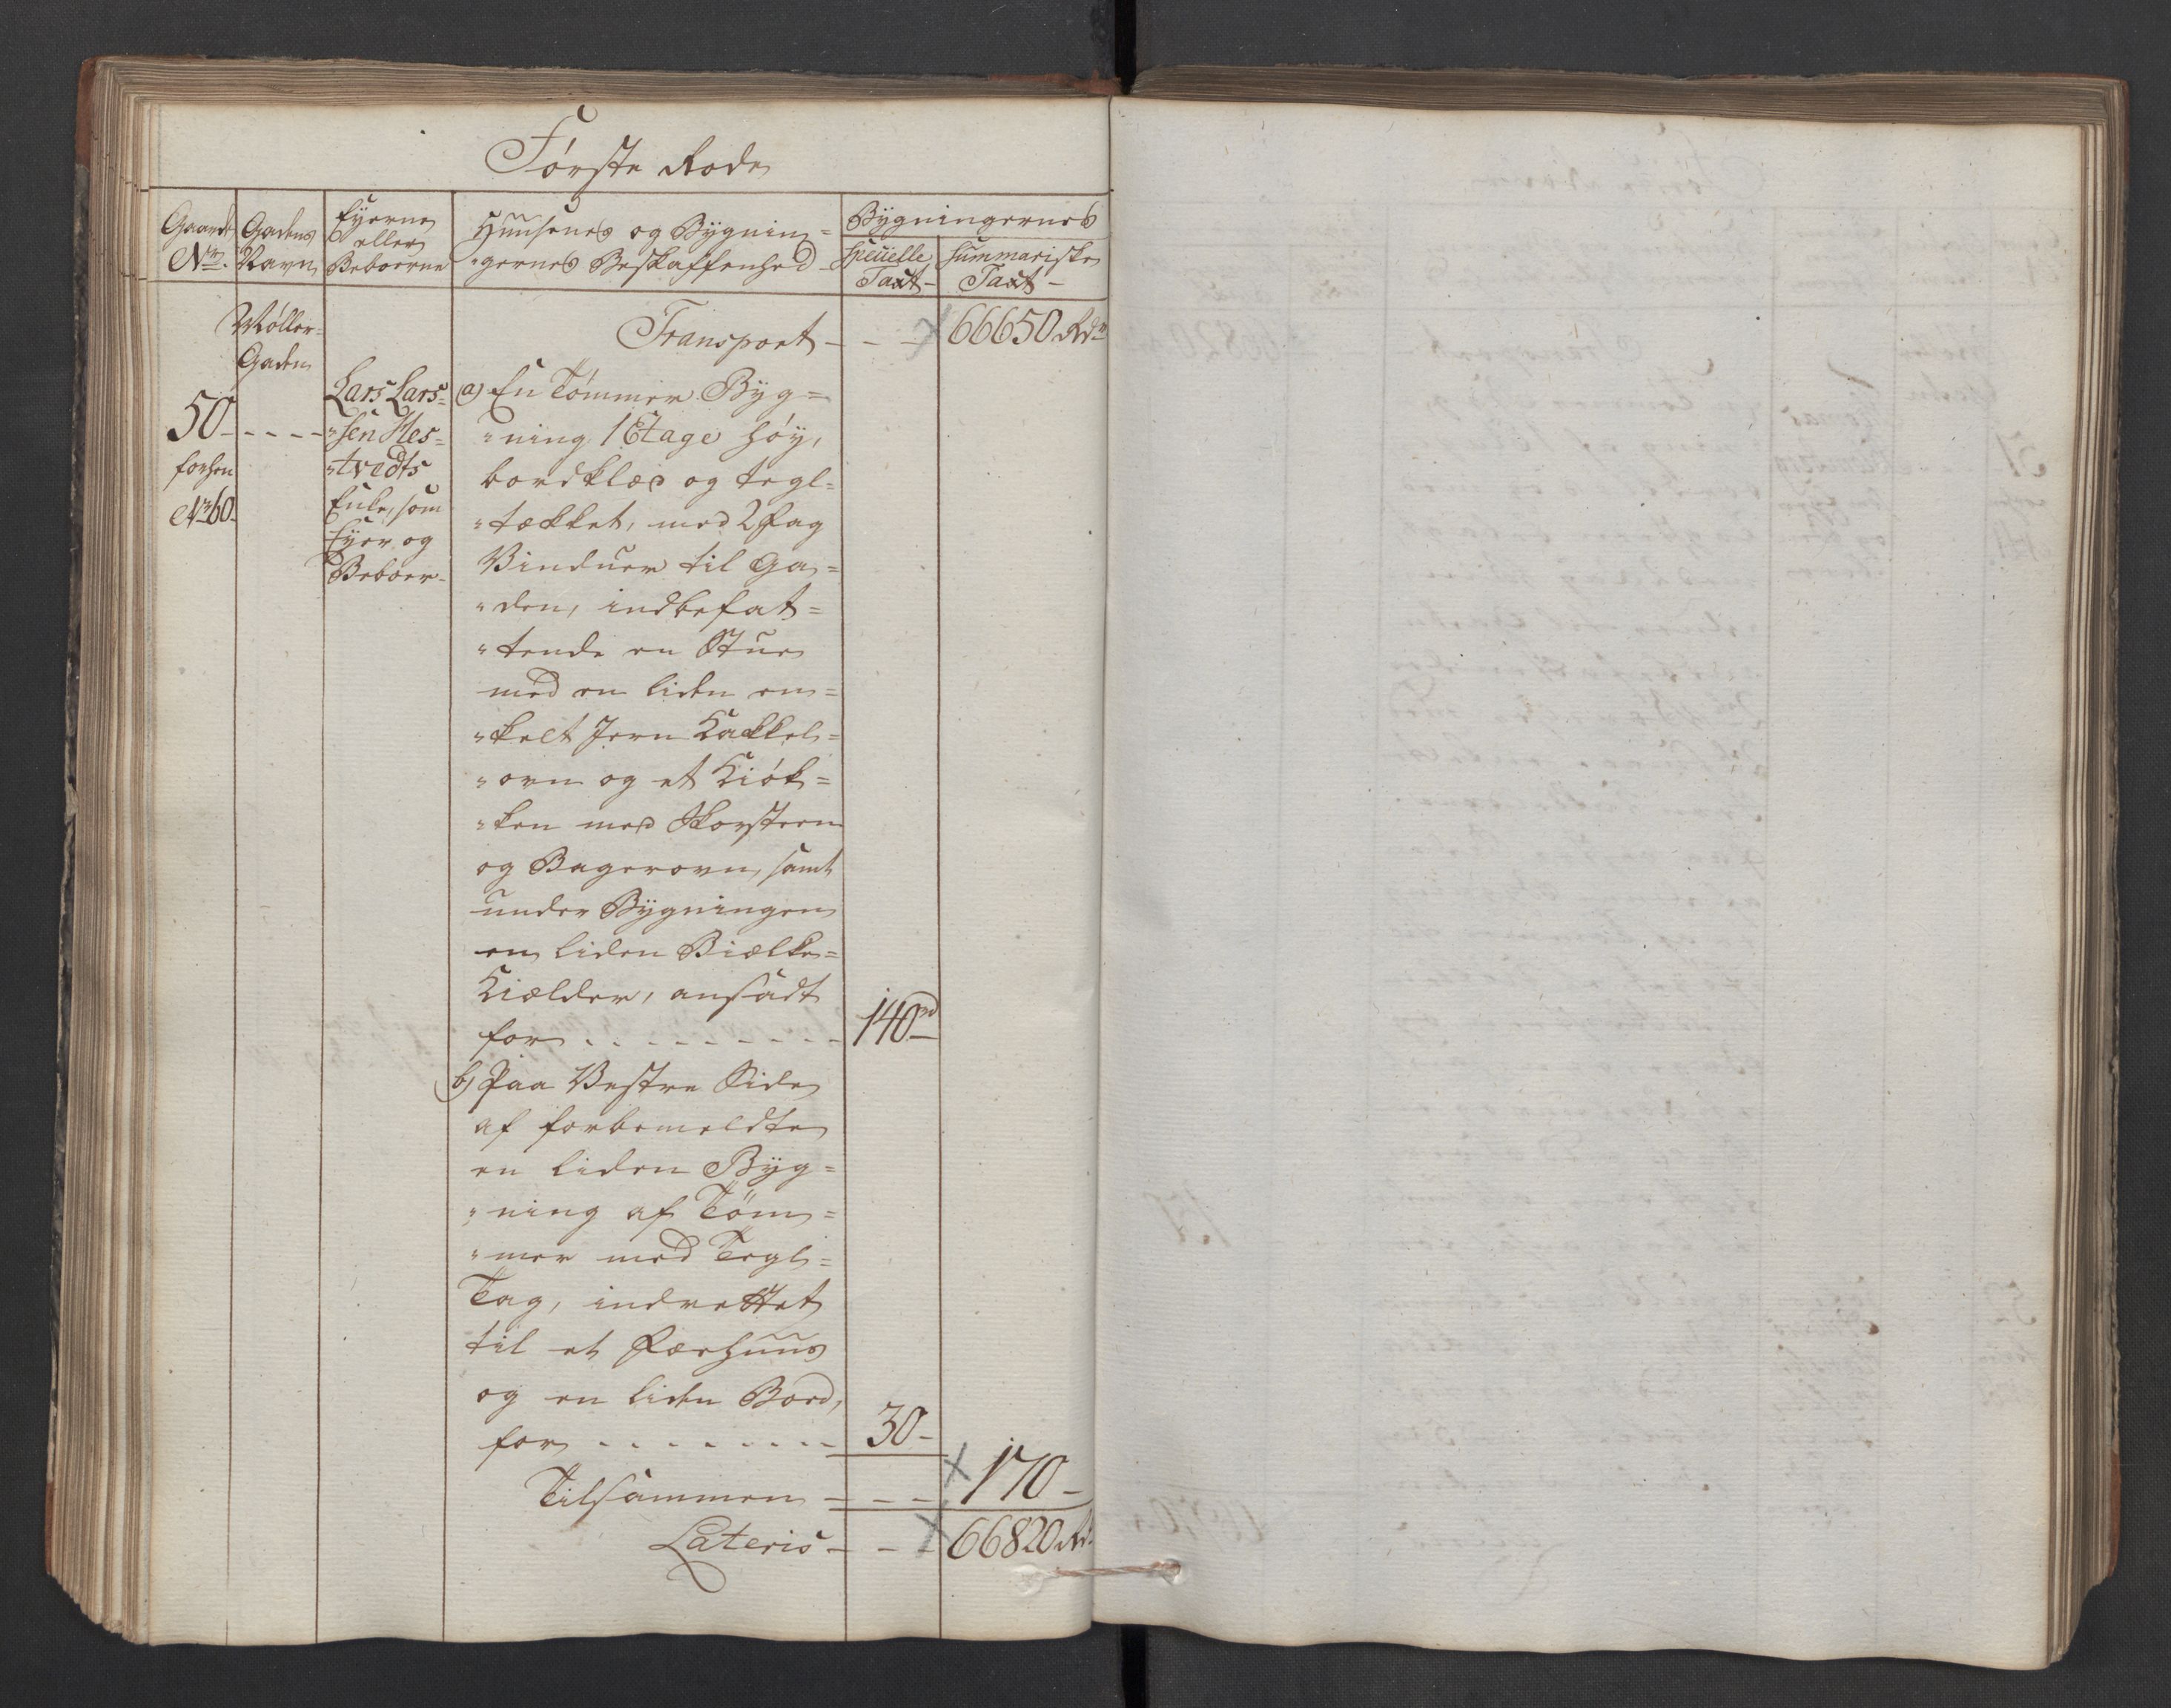 Første Rode
Gaard
No.
Gadens
Navn
Eyerne
eller
Beboerne
Huusenes og Bÿgnin=
"gernes Beskaffenhed
Bÿgningernes
Specielle
Taxt-
Summariske
Taxt-
Møller-
Gaden
Transport - - -
66650 Rdr
50 - - - -
forhen
No 60.
Lars Lars=
"sen Hes=
"tvedts
Enke, som
Eÿer og
Beboer-
a) En Tømmer Bÿg=
"ning 1 Etage høÿ,
bordklæd og tegl=
"tækket, med 2 Fag
Vinduer til Ga=
"den, indbefat=
"tende en Stue
med en liden en=
"kelt Jern Kakkel=
"ovn og et Kiøk=
"ken med Skorsteen
og Bagerovn, samt
under Bÿgningen
en liden Biælke=
Kielder, ansadt
for - - - - - - - - -
140rd
b) Paa Vestre Side
af forbemeldte
en liden Bÿg=
"ning af Tøm=
"mer med Tegl=
Tag, indrettet
til et Færhuus
og en liden Bod,
for - - - - - - - -
30-
Tilsammen - - -
170-
Lateris - - -
66820 Rd